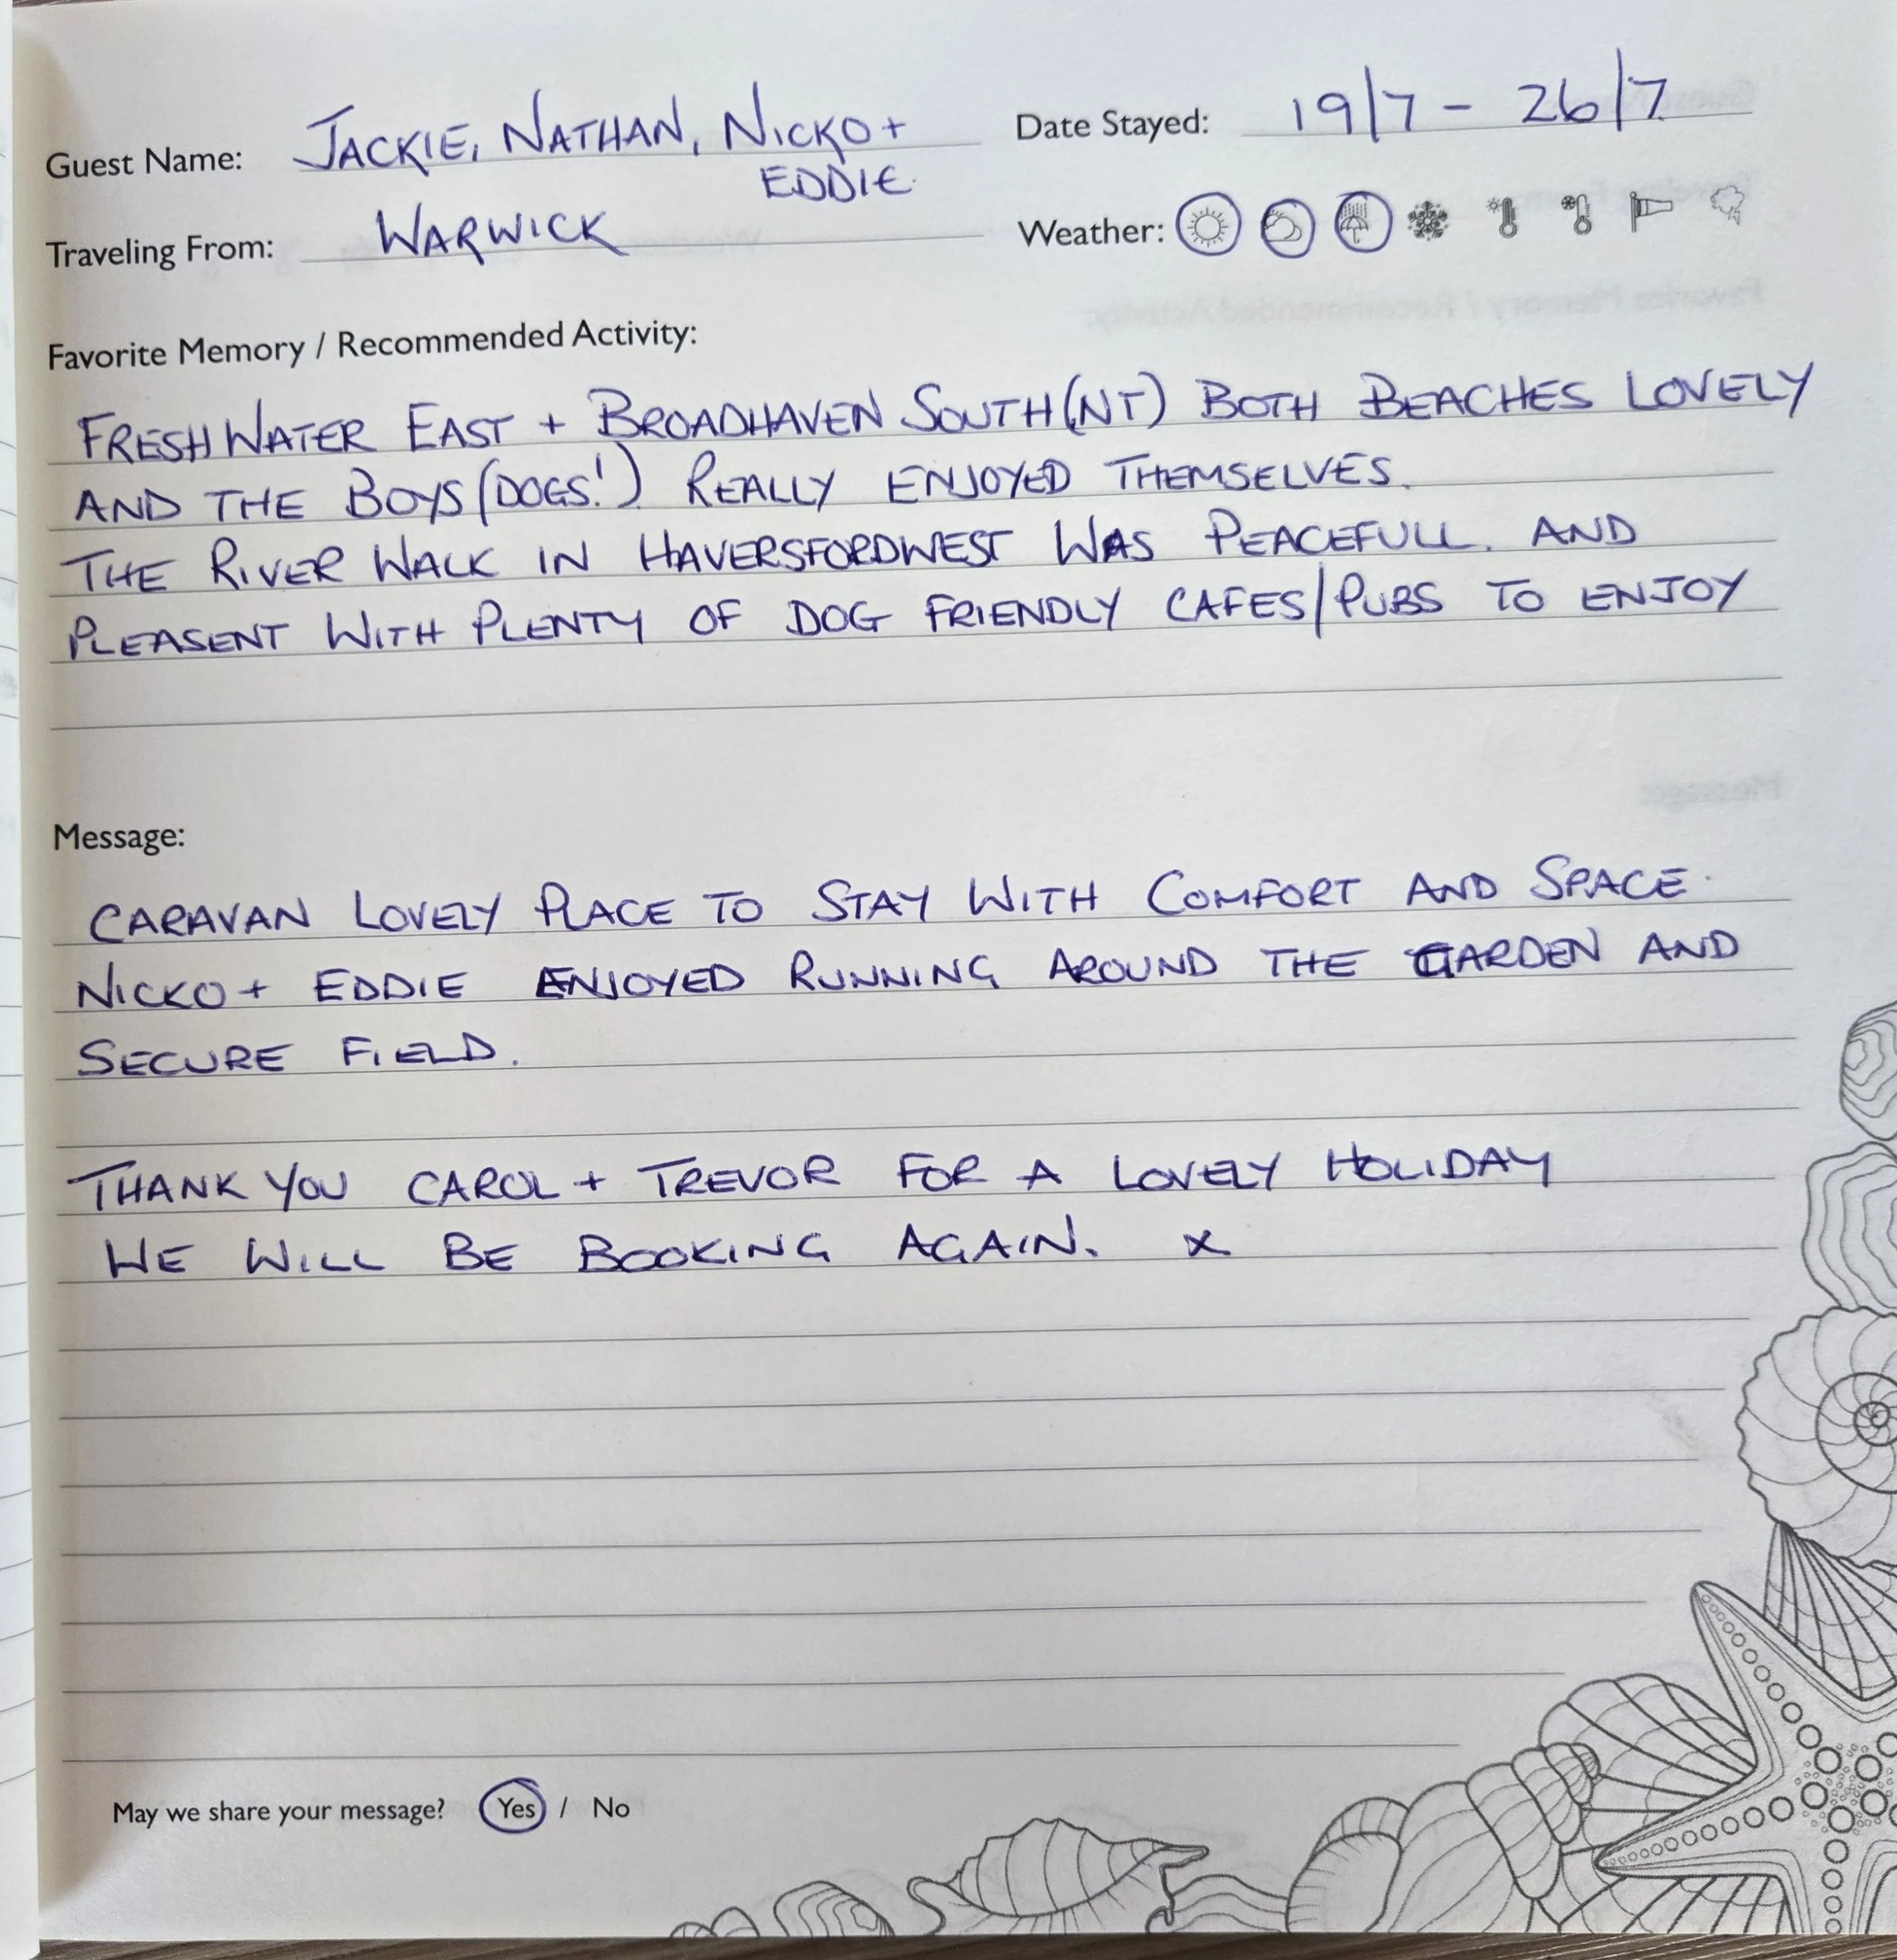 Guest Name: JACKIE, NATHAN, NICKO +
EDDIE.
Date Stayed: 19/7 - 26/7
Traveling From: WARWICK
Weather:
Favorite Memory / Recommended Activity:
FRESHWATER EAST + BROADHAVEN SOUTH (NT) BOTH BEACHES LOVELY
AND THE BOYS (DOGS!) REALLY ENJOYED THEMSELVES.
THE RIVER WALK IN HAVERSFORDWEST WAS PEACEFULL. AND
PLEASENT WITH PLENTY OF DOG FRIENDLY CAFES/PUBS TO ENJOY
Message:
CARAVAN LOVELY PLACE TO STAY WITH COMFORT AND SPACE.
NICKO + EDDIE ENJOYED RUNNING AROUND THE GARDEN AND
SECURE FIELD.
THANK YOU CAROL + TREVOR FOR A LOVELY HOLIDAY
WE WILL BE BOOKING AGAIN. X
May we share your message? Yes / No